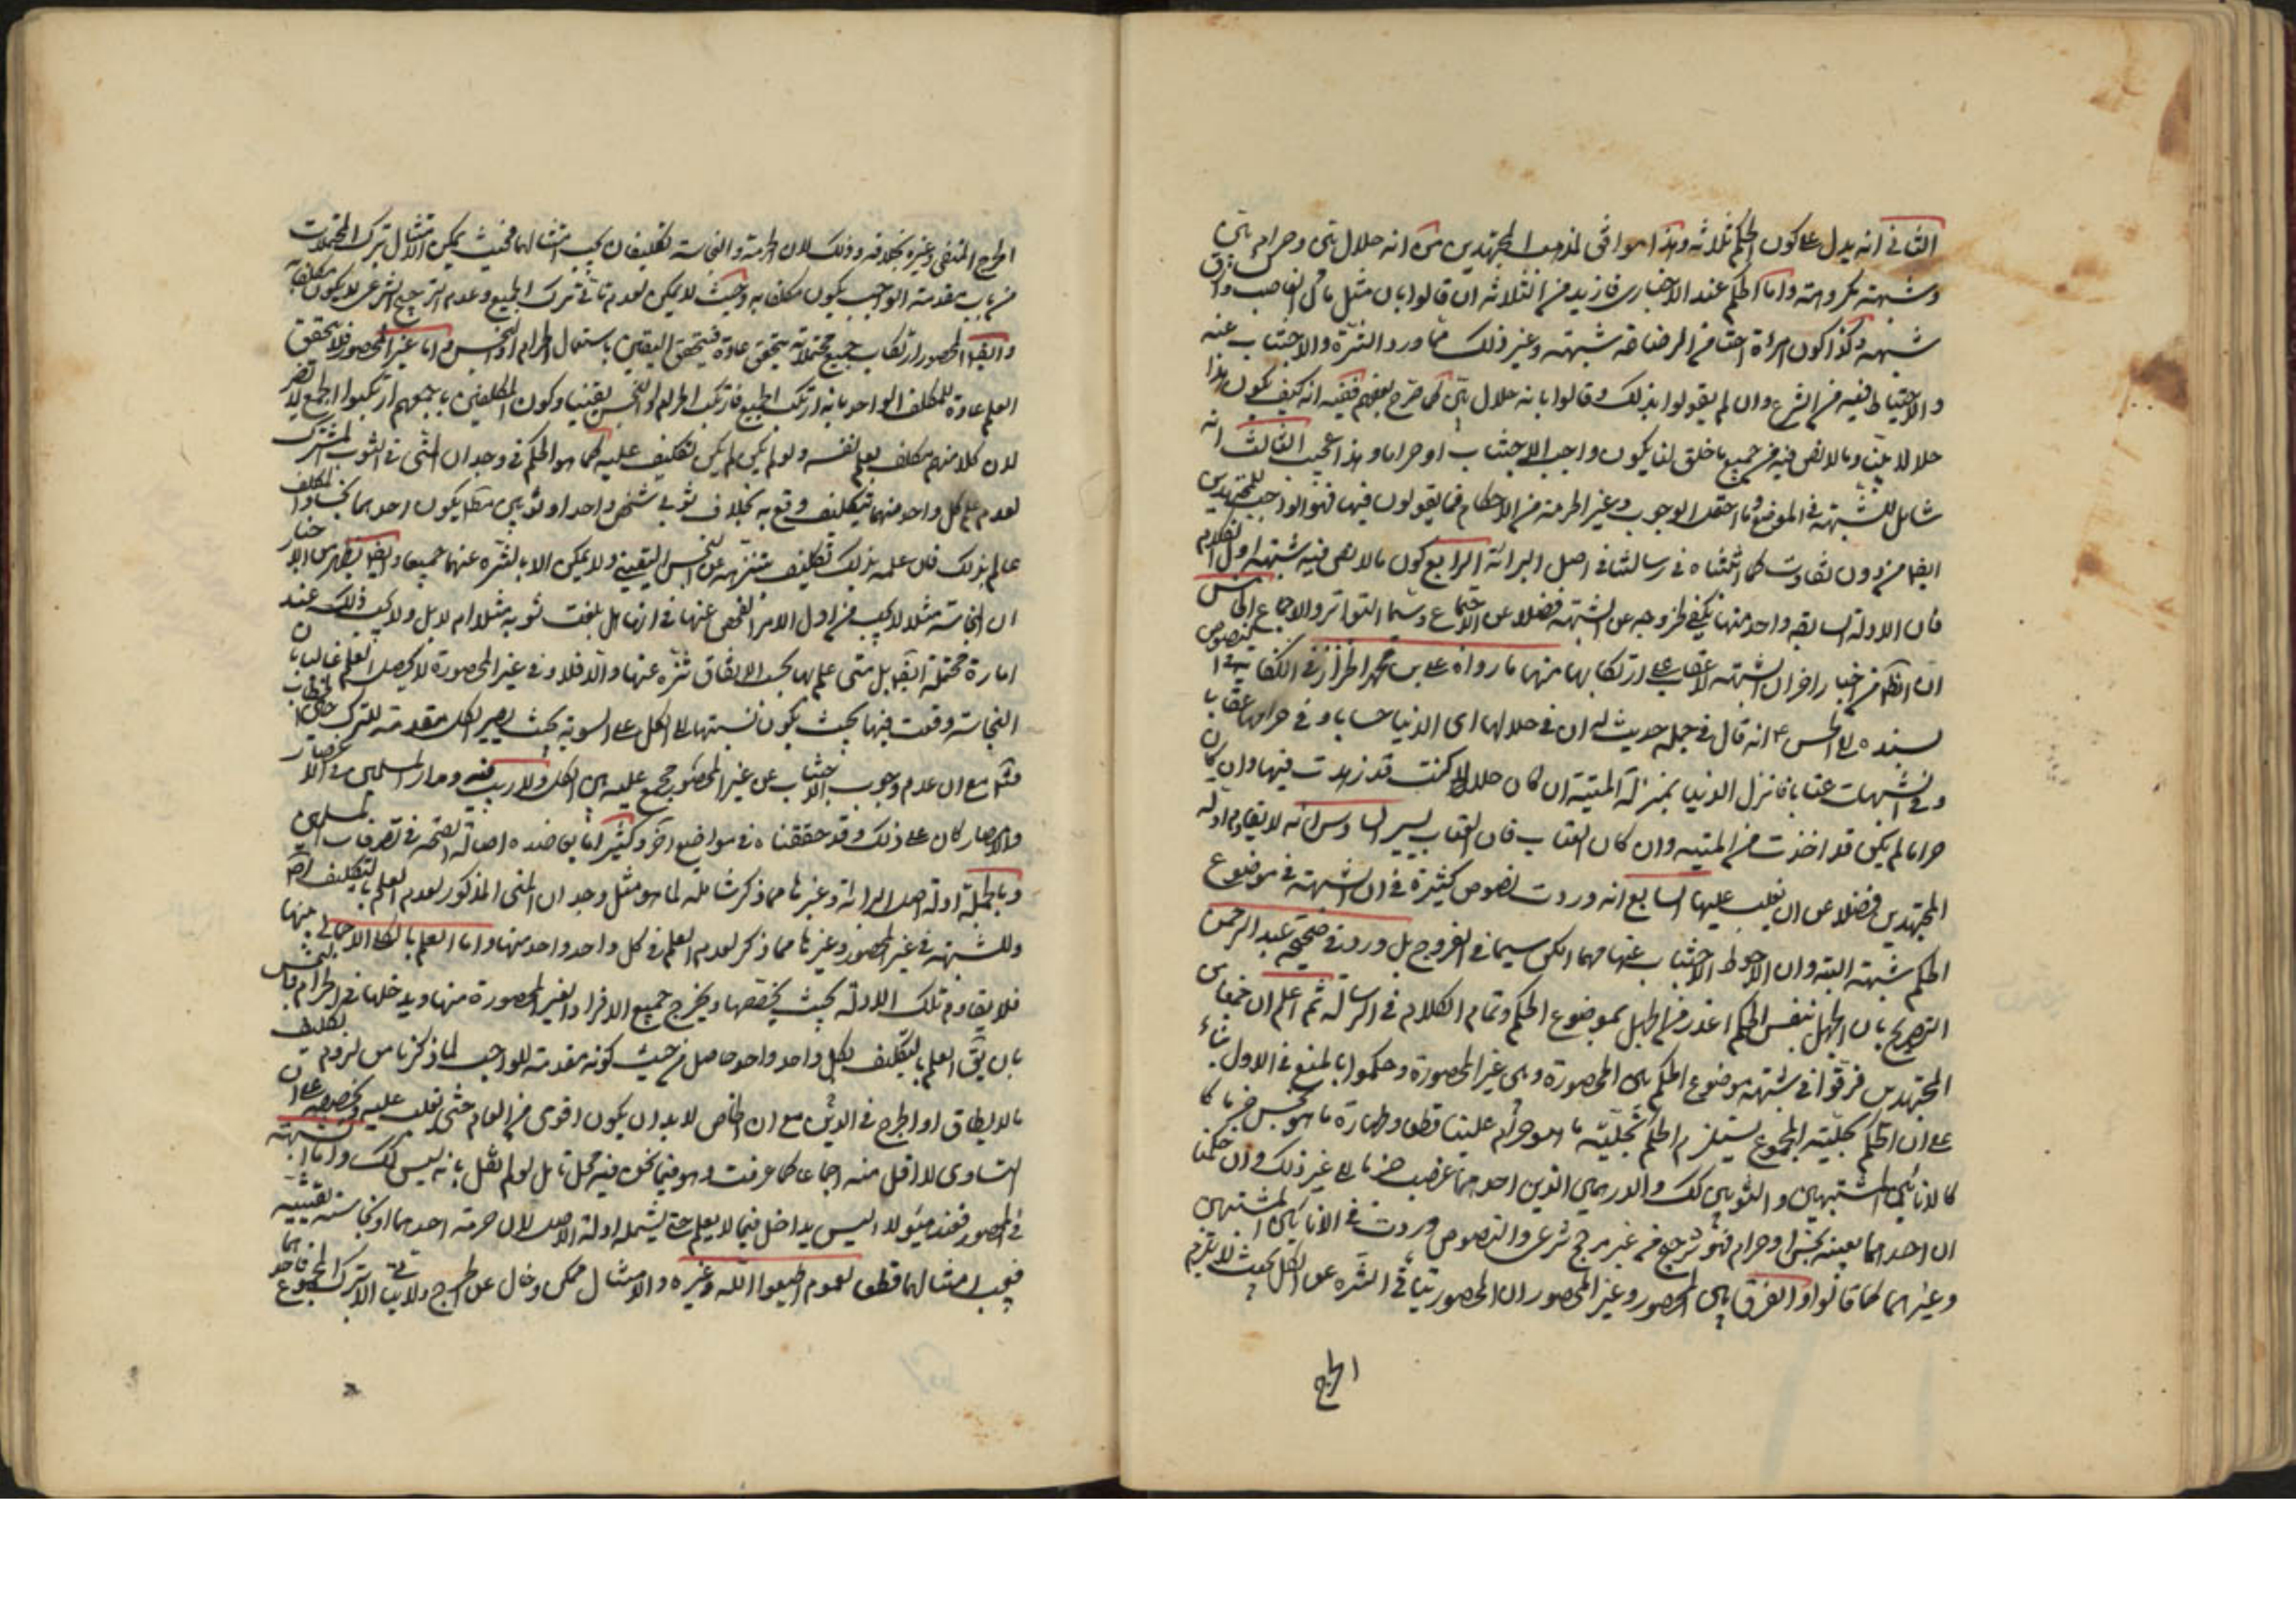 الثاني انه يدل على كون الحكم ثلاثة وهذا موافق لمذهب المجتهدين من انه حلال بين وحرام بين
وشبهة مكروهة واما الحكم عند الاخباري فازيد من الثلاثة ان قالوا بان مثل مال الغاصب والسارق
شبهة وكذا كون امراة اختا من الرضاعة شبهة وغير ذلك مما ورد التنزه والاجتناب عنه
والاحتياط فيه من الشرع وان لم يقولوا بذلك وقالوا بانه حلال بين كما صرح بعضهم ففيه انه كيف يكون هذا
حلالا بينا وما لا نص فيه من جميع ما خلق لنا يكون واجب الاجتناب او حراما وهذا عجيب الثالث انه
شامل للشبهة في الموضوع وما احتمل الوجوب وغير الحرمة من الاحكام فما يقولون فيها فهو الوارد للمجتهدين
ايضا من دون تفاوت كما اثبتناه في رسالتنا في اصل البرائة الرابع كون ما لا نص فيه شبهة اول الكلام
فان الادلة السابقة واحد منها يكفي لخروجه عن الشبهة فضلا عن الاجتماع وسيما التواتر والاجماع الخامس
ان الظاهر من اخبار اخر ان الشبهة لا عقاب على ارتكابها منها ما رواه علي بن محمد الخزاز في الكفاية في النصوص
بسنده الى الحسن ع انه قال في جملة حديث له ان في حلالها اى الدنيا حسابا وفي حرامها عقابا
وفي الشبهات عتابا فانزل الدنيا بمنزلة الميتة ان كان حلالا كنت قد زهدت فيها وان كان
حراما لم يكن قد اخذت من الميتة وان كان العتاب فان العتاب يسير السادس انه لا يقاوم ادلة
المجتهدين فضلا عن ان يغلب عليها السابع انه وردت نصوص كثيرة في ان الشبهة في موضوع
الحكم شبهة البتة وان الاحوط الاجتناب عنها مهما امكن سيما في الفروج بل ورد في صحيحة عبد الرحمن
التصريح بان الجهل بنفس الحكم اعذر من الجهل بموضوع الحكم وتمام الكلام في الرسالة ثم اعلم ان جمعا من
المجتهدين فرقوا في شبهة موضوع الحكم بين المحصورة وبين غير المحصورة وحكموا بالمنع في الاول بناء
على ان الحكم بحلية المجموع يستلزم الحكم بحلية ما هو حرام علينا قطعا وطهارة ما هو نجس جزما كا
كالانائين المشتبهين والثوبين كك والدرهمين الذين احدهما غصب جزما الى غير ذلك وان حكمنا
ان احدهما بعينه نجس او حرام فهو ترجيح من غير مرجح شرعي والنصوص وردت في الانائين المشتبهين
وغيرهما كما قالوا والفرق بين المحصور وغير المحصور ان المحصور يتأتى التنزه عن الكل بحيث لا يلزم
الحرج
الحرج المنفي وغيره بخلافه وذلك لان الحرمة والنجاسة تكليفان يجب امتثالهما فحيث يمكن الامتثال بترك المحتملات
من باب مقدمة الواجب يكون مكلفا به وحيث لا يمكن لعدم تاتي ترك الجميع وعدم الترجيح الشرعي لا يكون مكلفا به
وايضا المحصور ارتكاب جميع محتملاته يتحقق عادة فيتحقق اليقين باستعمال الحرام او النجس واما غير المحصور فلا يتحقق
العلم عادة للمكلف الواحد بانه ارتكب الجميع فارتكب الحرام او النجس يقينا وكون المكلفين باجمعهم ارتكبوا الجميع لا يضر
لان كلا منهم مكلف بعلم نفسه ولو لم يكن لم يكن تكليف عليه كما هو الحكم في وجدان المني في الثوب المشترك
لعدم علم كل واحد منهما بتكليف وقع به بخلاف ثوبي شخص واحد او ثوبين مثلا يكون احدهما نجسا والمكلف
عالم بذلك فان علمه بذلك تكليف بتنزهه عن النجس اليقيني ولا يمكن الا بالتنزه عنهما جميعا وايضا يظهر من الاخبار
ان النجاسة مثلا لا يجب من اول الامر الفحص عنها في انها هل بلغت ثوبه مثلا ام لا بل ولا يجب ذلك عند
امارة محتملة ايضا بل متى علم بها بحسب الاتفاق تنزه عنها والا فلا وفي غير المحصورة لا يحصل العلم غالبا بان
النجاسة وقعت فيها بحيث يكون نسبتها الى الكل على السوية بحيث يصير الكل مقدمة للترك
مع ان عدم وجوب الاجتناب عن غير المحصور مجمع عليه بين الكل ولا ريب فيه ومدار المسلمين في الاعصار
والامصار كان على ذلك وقد حققناه في مواضع اخر وكثيرا ما يعاضده اصالة الصحة في تصرفات المسلمين
وبالجملة ادلة اصل البرائة وغيرها مما ذكر شاملة لما هو مثل وجدان المني المذكور لعدم العلم بالتكليف اصلا
وللشبهة في غير المحصور وغيرها مما ذكر لعدم العلم في كل واحد واحد منها واما العلم بالكل الاجمالي منها
فلا يقاوم تلك الادلة بحيث يخصصها ويخرج جميع الافراد الغير المحصورة منها ويدخلها في الحرام والنجس
بان يق العلم بالتكليف بكل واحد واحد حاصل من حيث كونه مقدمة للواجب لما ذكرنا من لزوم تكليف
ما لا يطاق او الحرج في الدين مع ان الخاص لا بد ان يكون اقوى من العام حتى يغلب عليه ويخصصه على ان
التساوى لا اقل منه اجماعا كما عرفت وهو فيما نحن فيه محل تامل لو لم نقل بانه ليس كك واما الشبهة
في المحصور فعند هؤلاء ليس بداخل فيما لا يعلم حتى يشمله ادلة الاصل لان حرمة احدهما او نجاسته يقينية
فيجب امتثالهما قطعا لعموم اطيعوا الله وغيره والامتثال ممكن وخال عن الحرج ولا يتاتى الا بترك المجموع